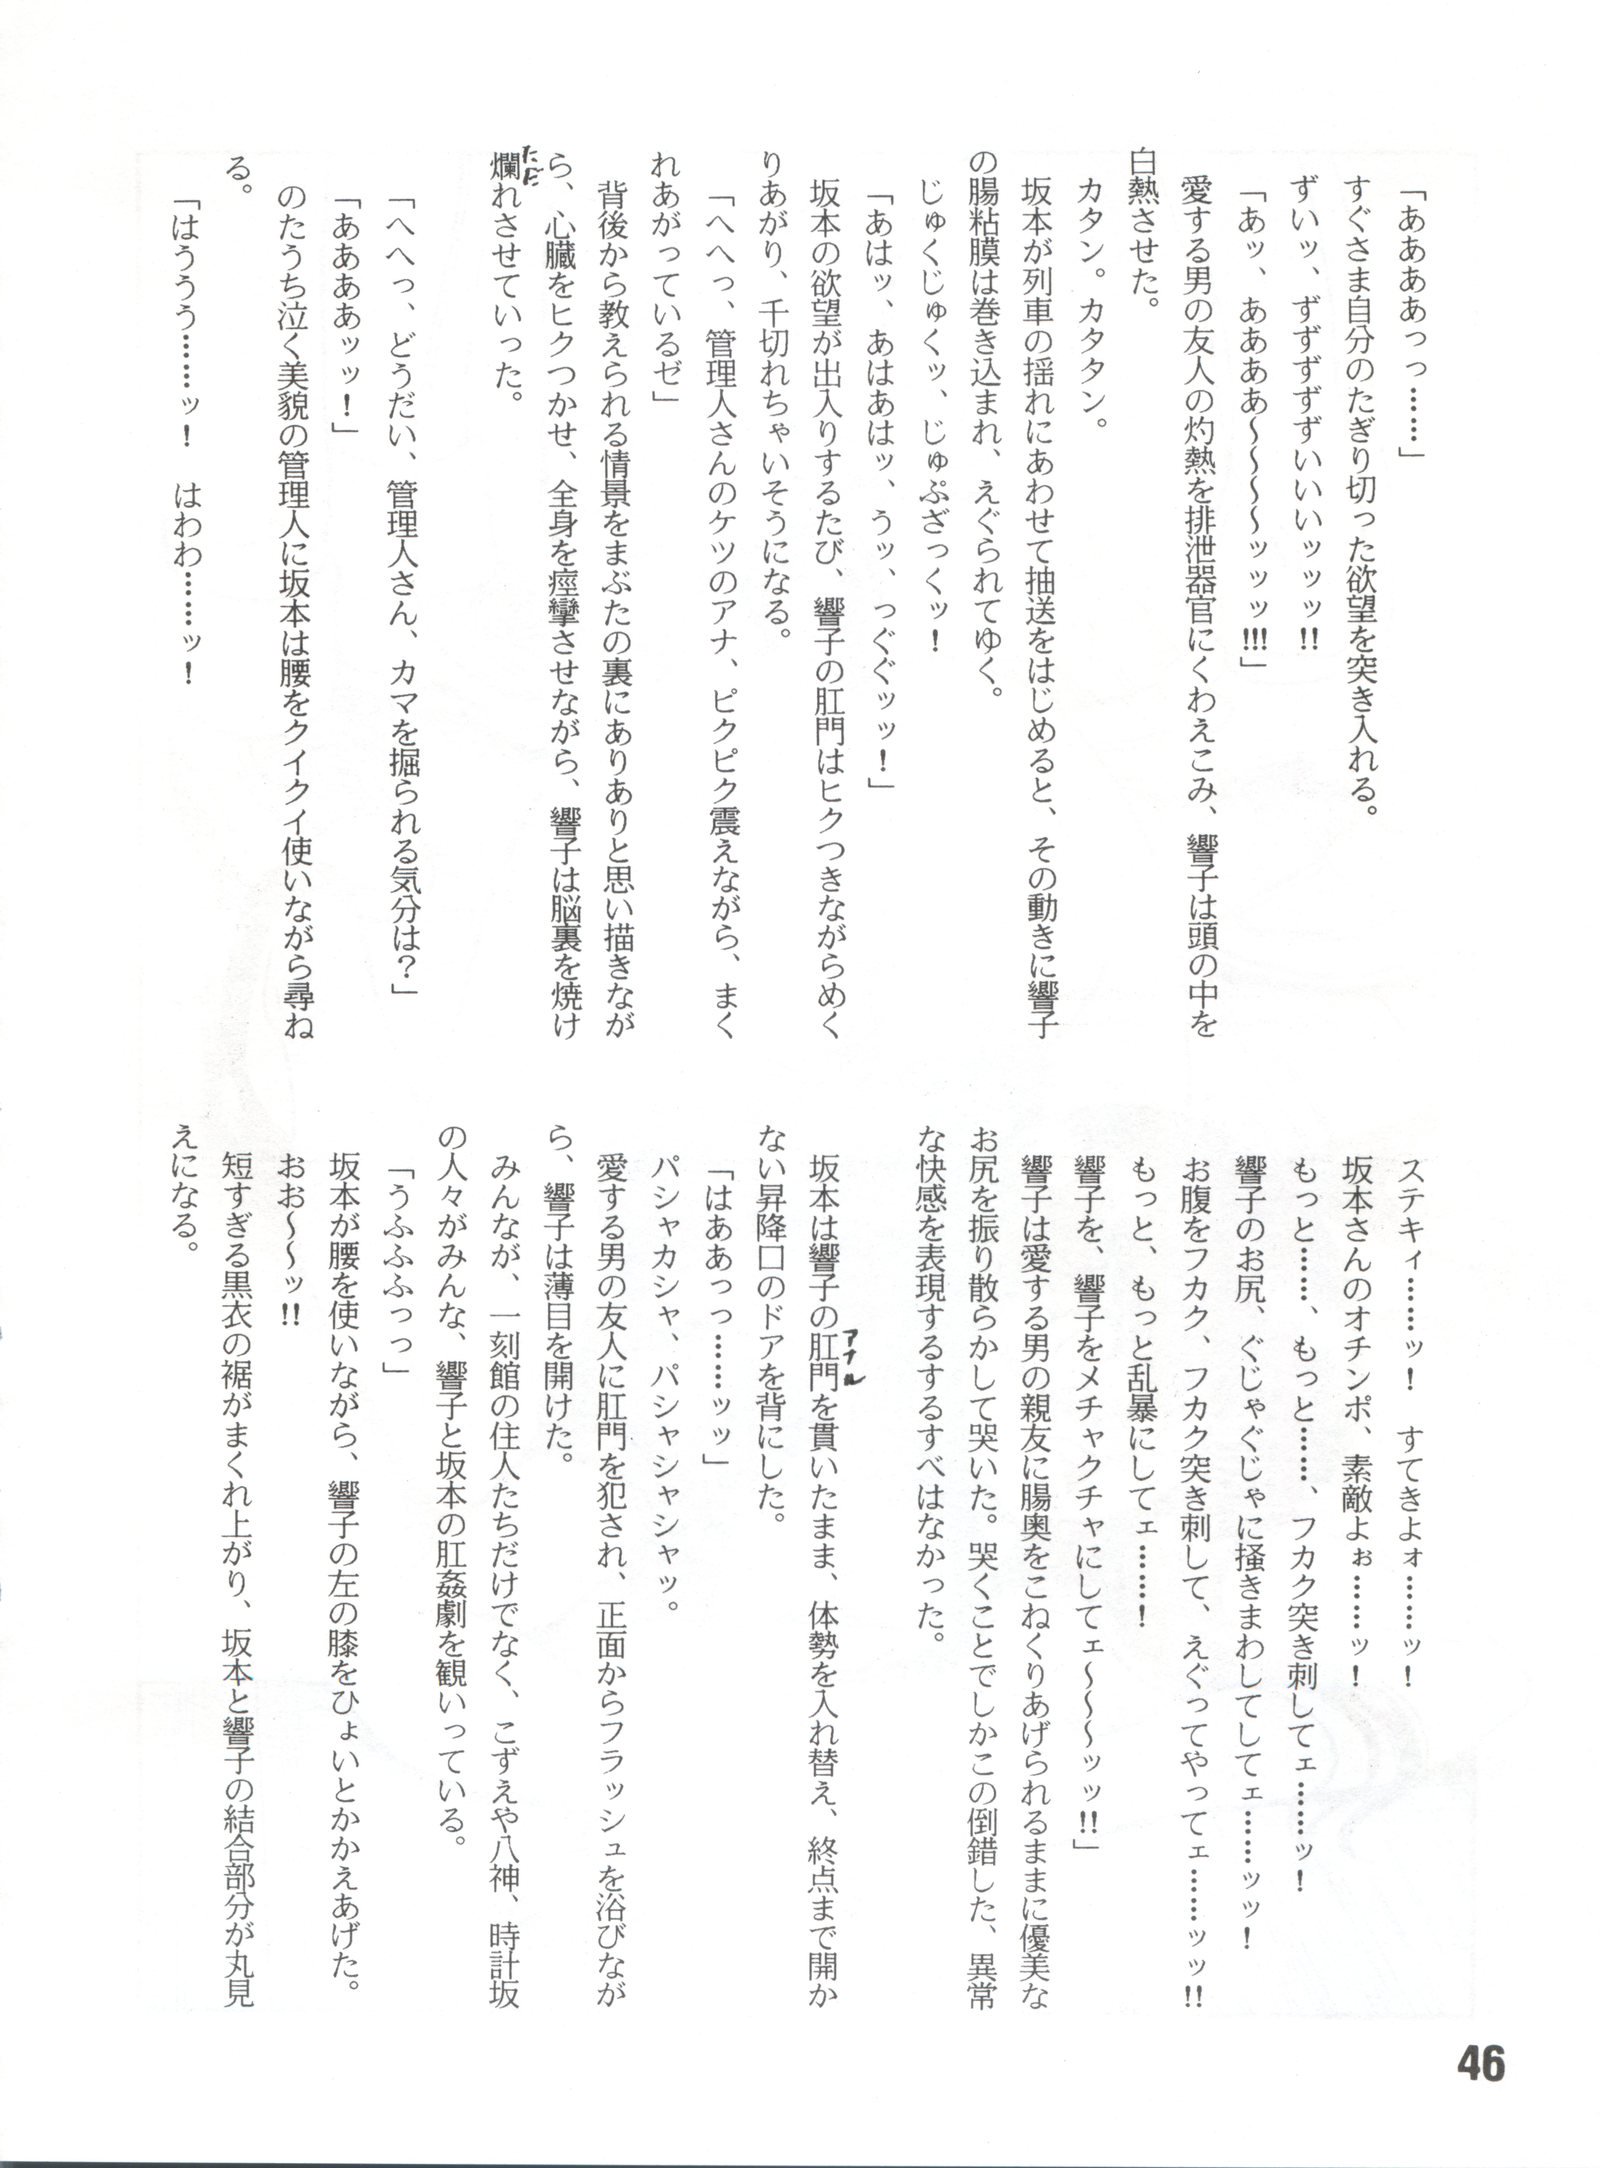 「ああああっっ……」
すぐさま自分のたぎり切った欲望を突き入れる。
ずいッ、ずずずずずいいいッッッ!!
「あッ、ああああ〜〜〜〜ッッッ!!!」
愛する男の友人の灼熱を排泄器官にくわえこみ、響子は頭の中を
白熱させた。
カタン。カタタン。
坂本が列車の揺れにあわせて抽送をはじめると、その動きに響子
の腸粘膜は巻き込まれ、えぐられてゆく。
じゅくじゅくッ、じゅぷざっくッ!
「あはッ、あはあはッ、うッ、っぐぐッッ!」
坂本の欲望が出入りするたび、響子の肛門はヒクつきながらめく
りあがり、千切れちゃいそうになる。
「へへっ、管理人さんのケツのアナ、ピクピク震えながら、まく
れあがっているゼ」
背後から教えられる情景をまぶたの裏にありありと思い描きなが
ら、心臓をヒクつかせ、全身を痙攣させながら、響子は脳裏を焼け
爛れさせていった。
「へへっ、どうだい、管理人さん、カマを掘られる気分は?」
「ああああッッ!」
のたうち泣く美貌の管理人に坂本は腰をクイクイ使いながら尋ね
る。
「はううう……ッ! はわわ……ッ!
ステキィ……ッ! すてきよォ……ッ!
坂本さんのオチンポ、素敵よぉ……ッ!
もっと……、もっと……、フカク突き刺してェ……ッ!
響子のお尻、ぐじゃぐじゃに掻きまわしてしてェ……ッッ!
お腹をフカク、フカク突き刺して、えぐってやってェ……ッッ!!
もっと、もっと乱暴にしてェ……!
響子を、響子をメチャクチャにしてェ〜〜〜ッッ!!」
響子は愛する男の親友に腸奥をこねくりあげられるままに優美な
お尻を振り散らかして哭いた。哭くことでしかこの倒錯した、異常
な快感を表現するするすべはなかった。
坂本は響子の肛門を貫いたまま、体勢を入れ替え、終点まで開か
ない昇降口のドアを背にした。
「はああっっ……ッッ」
パシャカシャ、パシャシャシャッ。
愛する男の友人に肛門を犯され、正面からフラッシュを浴びなが
ら、響子は薄目を開けた。
みんなが、一刻館の住人たちだけでなく、こずえや八神、時計坂
の人々がみんな、響子と坂本の肛姦劇を観いっている。
「うふふふっっ」
坂本が腰を使いながら、響子の左の膝をひょいとかかえあげた。
おお〜〜ッ!!
短すぎる黒衣の裾がまくれ上がり、坂本と響子の結合部分が丸見
えになる。
46